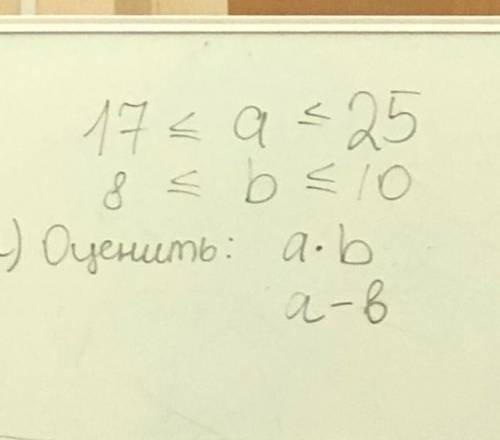 17 ≤ a ≤ 25
8 ≤ b ≤ 10
) Оценить: a·b
a-в